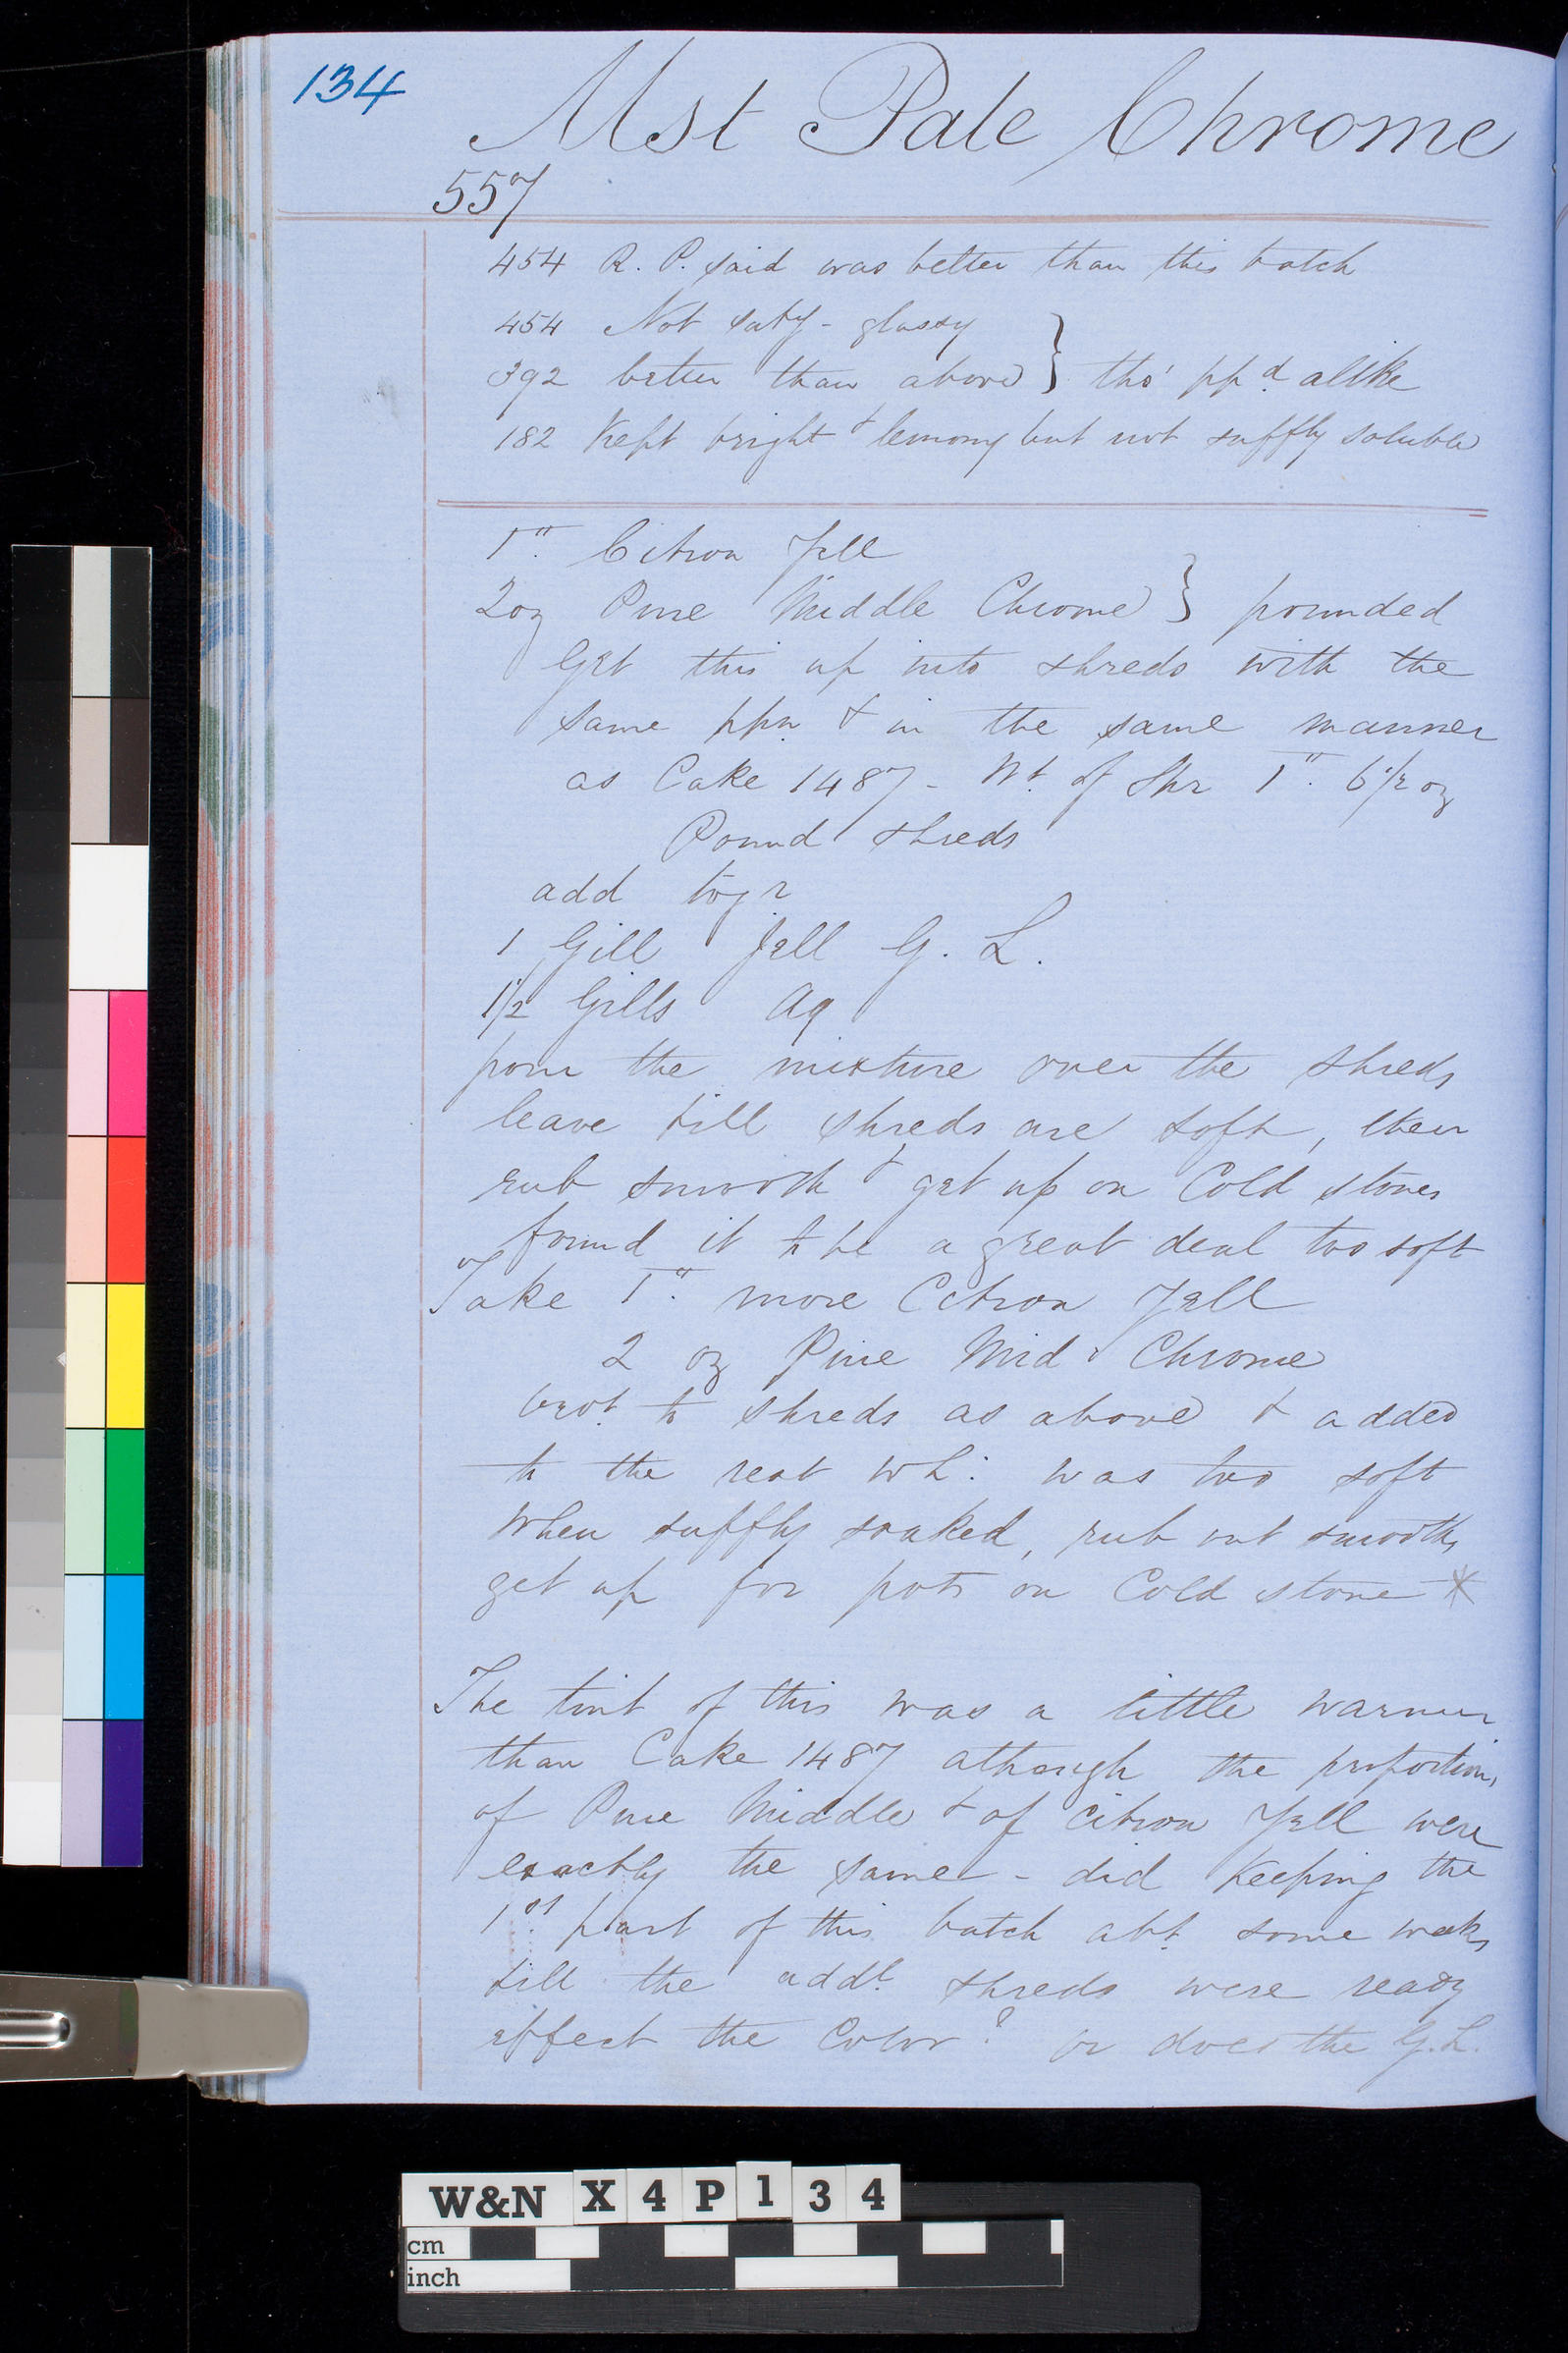 134
Mst Pale Chrome
557
454 R. P. said was better than this batch
454 Not saty - glassy
392 better than above } tho' ppd alike
182 Kept bright & lemony but not suffly soluble
1". Citron Yell
2oz Pure Middle Chrome } pounded
Get this up into shreds with the
same ppn & in the same manner
as Cake 1487 - Wt. of Shr 1". 6 1/2 oz
Pound shreds
add togr
1 Gill Jell G. L.
1 1/2 Gills Aq
pour the mixture over the shreds
leave till shreds are soft, then
rub smooth & get up on Cold stones
found it to be a great deal too soft
Take 1". more Citron Yell
2 oz Pure Mid Chrome
brot. to shreds as above & added
to the rest wh: was too soft
When suffly soaked, rub out smooth,
get up for pots on Cold stone *
The tint of this was a little warmer
than Cake 1487 athough the proportions
of Pure Middle & of Citron Yell were
exactly the same - did Keeping the
1st. part of this batch abt. some weeks
till the addl. shreds were ready
effect the Color? or does the G. L.
W&N X 4 P 1 3 4
cm
inch